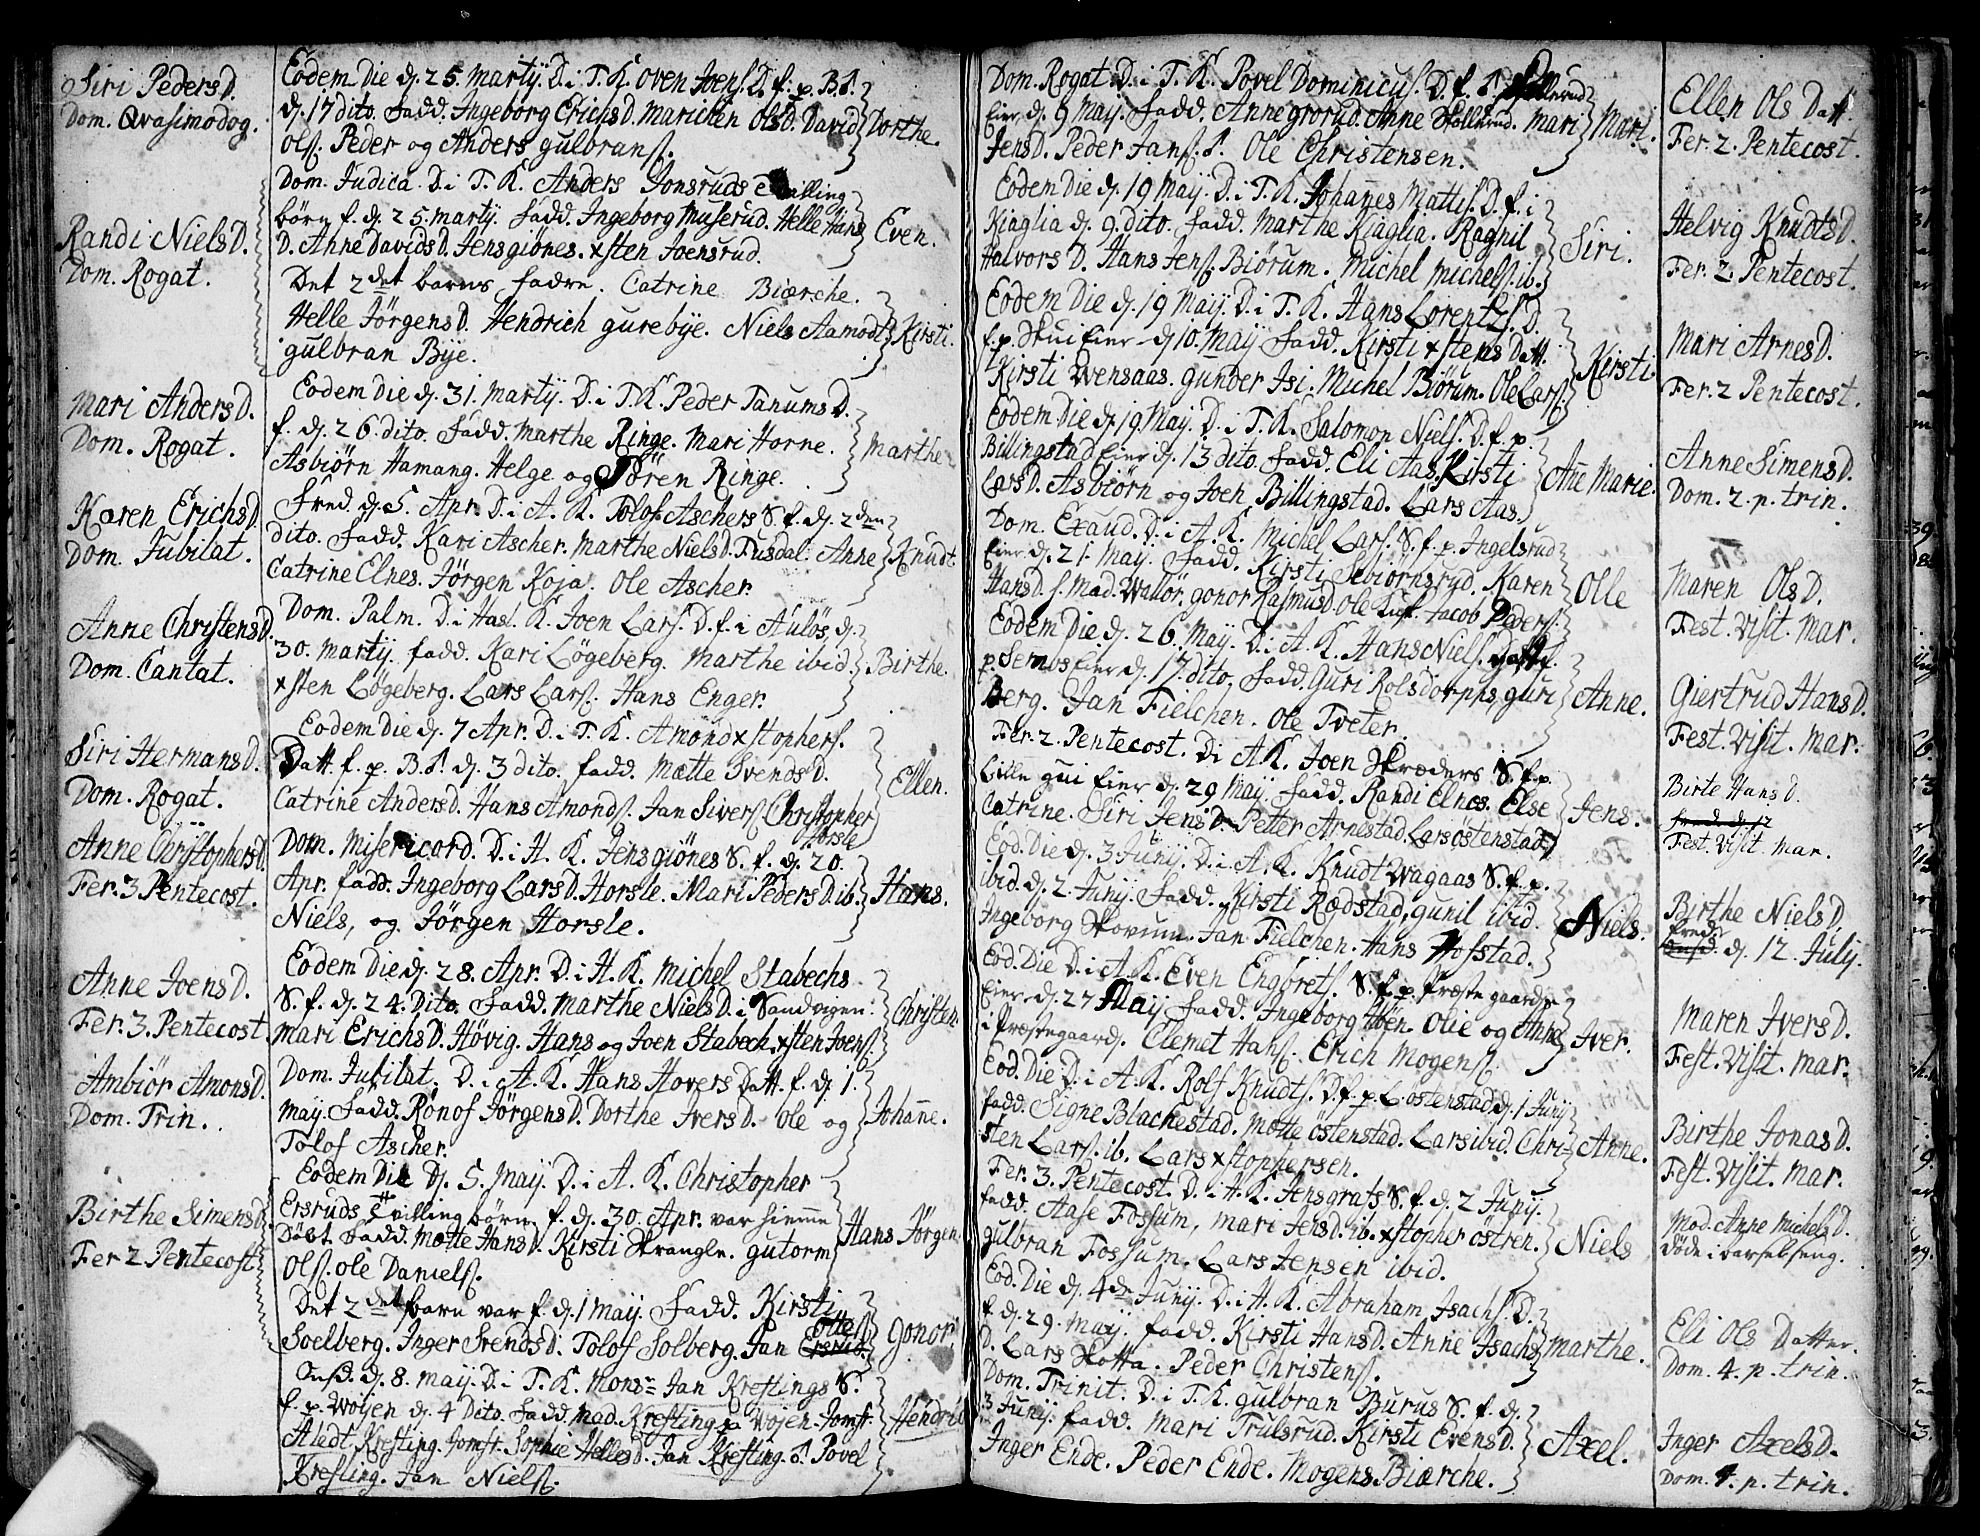 Siri Peders D.
Dom. Qvasimodog.
Randi Niels D.
Dom. Rogat.
Mari Anders D.
Dom. Rogat.
Karen Erichs D.
Dom. Jubilat.
Anne Christens D.
Dom. Cantat.
Siri Hermans D.
Dom. Rogat.
Anne Christophers D.
Fer. 3. Pentecost.
Anne Joens D.
Fer. 3. Pentecost.
Ambiör Amons D.
Dom. Trin.
Birthe Simens D.
Fer 2 Pentecost
Eodem Die d. 25. Martij. D. i T. K. Oven Joens. D. f. p. B.
d. 17 dito. Fadd. Ingeborg Erichs D. Marichen Ols D. David
Ols. Peder og Anders gulbrans.
Dorthe.
Dom. Judica. D. i T. K. Anders Jonsruds Tvilling
börn f. d. 25. Martij. Fadd. Ingeborg Muserud. Helle Hans
D. Anne Davids D. Jens giönes. xsten Joensrud.
Even.
Det 2det barns Fadre. Catrine Biærche.
Helle Jörgens D. Hendrich gurebye. Niels Aamodt
gulbran Bye.
Kirsti.
Eodem Die d. 31. Martij. D. i T. K. Peder Tanums D.
f. d. 26. dito. Fadd. Marthe Ringe. Mari Horne.
Asbiörn Hamang. Helge og Sören Ringe.
Marthe
Fred. d. 5. Apr. D. i A. K. Tolof Aschers S. f. d. 2den
dito. Fadd. Kari Ascher. Marthe Niels D. Tusdal. Anne
Catrine Elnes. Jörgen Koja. Ole Ascher.
Knudt
Dom. Palm. D. i Hasl. K. Joen Lars. D. f. i Aulös d.
30. Martij. fadd. Kari Lögeberg. Marthe ibid.
xsten Lögeberg. Lars Lars. Hans Enger.
Birthe.
Eodem Die d. 7 Apr. D. i T. K. Amond xstophers.
Datt. f. p. B. d. 3 dito. fadd. Mætte Svends D.
Catrine Anders D. Hans Amonds. Jan Sivers. Christopher
Horsle
Ellen.
Dom. Misericord. D. i H. K. Jens giönes S. f. d. 20.
Apr. fadd. Ingeborg Lars D. Horsle. Mari Peders D. ib.
Niels, og Jörgen Horsle.
Hans.
Eodem Die d. 28. Apr. D. i H. K. Michel Stabechs
S. f. d. 24. Dito. Fadd. Marthe Niels D. i Sandvigen.
Mari Erichs D. Hövig. Hans og Joen Stabech. xsten Joens.
Christen.
Dom. Jubilat. D. i A. K. Hans Hovers Datt. f. d. 1.
Maij. Fadd. Rönof Jörgens D. Dorthe Ivers D. Ole og
Tolof Ascher.
Johanne.
Eodem Die d. 5. Maij. D. i A. K. Christopher
Ersruds Tvilling börn f. d. 30. Apr. var hiemme
Döbt. Fadd. Mötte Hans D. Kirsti Skrangle. gutorm
Ols. Ole Daniels.
Hans Jörgen.
Det 2det barn var f. d. 1 Maij. Fadd. Kirsti
Soelberg. Inger Svends D. Tolof Solberg. Jan Ottes
Gonor
Onsd. d. 8. Maij. D. i T. K. Monsr Jan Kreftings S.
f. p. Wöijen d. 4 Dito. Fadd. Mad. Krefting p. Wöjen. Jomfr.
Aladt Krefting. Jomfr. Sophie Helles D. Jan Krefting. Povel
Krefting. Jan Niels.
Hendric
Dom. Rogat. D. i T. K. Povel Dominicus. D. f.
Eier d. 9 Maij. Fadd. Anne grorud. Anne Skollerud. Mari
Jens D. Peder Jans. Ole Christensen.
Mari.
Eodem Die d. 19 Maij. D. i T. K. Johannes Mattis. D. f. i
Kiaglia d. 9. dito. Fadd. Marthe Kiaglia. Ragnil
Halvors D. Hans Jens. Biörum. Michel Michels. ib.
Siri.
Eodem Die d. 19 Maij. D. i T. K. Hans Lorentzs. D.
f. p. Skui Eier d. 10. Maij Fadd. Kirsti xstens Datt.
Kirsti Wensaas. gunder Isi. Michel Biörum. Ole Lars.
Kirsti
Eodem Die d. 19. Maij. D. i T. K. Salomon Niels. D. f. p.
Billingstad Eier d. 13 dito. Fadd. Eli Aas. Kirsti
Lars D. Asbiörn og Joen Billingstad. Lars Aas.
Ane Marie.
Dom. Exaud. D. i A. K. Michel Lars. S. f. p. Ingelsrud
Eier d. 21. Maij. Fadd. Kirsti Sebiörnsrud. Karen
Hans D. Mad. Wallör. gonor Rasmus D. Ole Jacob Peders.
Olle
Eodem Die d. 26. Maij. D. i A. K. Hans Niels. Datt f.
p. Sembs Eier d. 17. dito. Fadd. Guri Rolsdorphs guri
Berg. Jan Fielchen. Ole Tveter.
Anne.
Fer. 2. Pentecost. D. i A. K. Joen Skræders S. f. p.
Lille gui Eier d. 29 Maij. Fadd. Randi Elnes. Else
Catrine. Siri Jens D. Petter Arnestad. Lars östenstad.
Jens.
Eod. Die d. 3 Junij. D. i A. K. Knudt Wagaas S. f. p.
ibid. d. 2 Junij. Fadd. Kirsti Rødstad. gunil ibid.
Ingeborg Skovum. Jan Fielchen. Hans Hofstad.
Niels.
Eod. Die D. i A. K. Even Engbrets. S. f. p. Præste gaards
Eier d. 27 Maij Fadd. Ingeborg Höen Olie og Anne
i Præstegaard. Clemet Hans. Erich Mogens.
Iver.
Eod. Die D. i A. K. Rolf Knudts. D. f. p. L. östenstad d. 1 Junij
fadd. Signe Blachestad. Mötte östenstad. Lars ibid. Chri-
sten Lars. ib. Lars xstophersen.
Anne.
Fer. 3. Pentecost. D. i H. K. Jens grats S. f. d. 2 Junij.
fadd. Aase Fossum. Mari Jens D. ib. xstopher östren.
gulbran Fossum. Lars Jensen ibid.
Niels
Eod. Die d. 4de Junij. D. i H. K. Abraham Isachs. D.
f. d. 29. Maij. fadd. Kirsti Hans D. Anne Isachs
D. Lars Skotta. Peder Christens.
Marthe.
Dom. Trinit. D. i T. K. gulbran Burus S. f. d.
3 Junij. fadd. Mari Trulsrud. Kirsti Evens D.
Inger Ende. Peder Ende. Mogens Biærche.
Axel.
Ellen Ols Datt.
Fer. 2. Pentecost.
Helvig Knudts D.
Fer. 2. Pentecost.
Mari Arnes D.
Fer. 2 Pentecost.
Anne Simens D.
Dom. 2. p. trin.
Maren Ols D.
Fest. Visit. Mar.
Giertrud Hans D.
Fest. Visit. Mar.
Birte Hans D.
Fest. Visit Mar.
Birthe Niels D.
Fred. d. 12. Julij.
Maren Ivers D.
Fest. Visit. Mar.
Birthe Jonas D.
Fest. Visit. Mar.
Mad. Anne Michels D.
döde i barselseng.
Eli Ols Datter.
Dom. 4. p. trin.
Inger Axels D.
Dom. 4. p. trin.